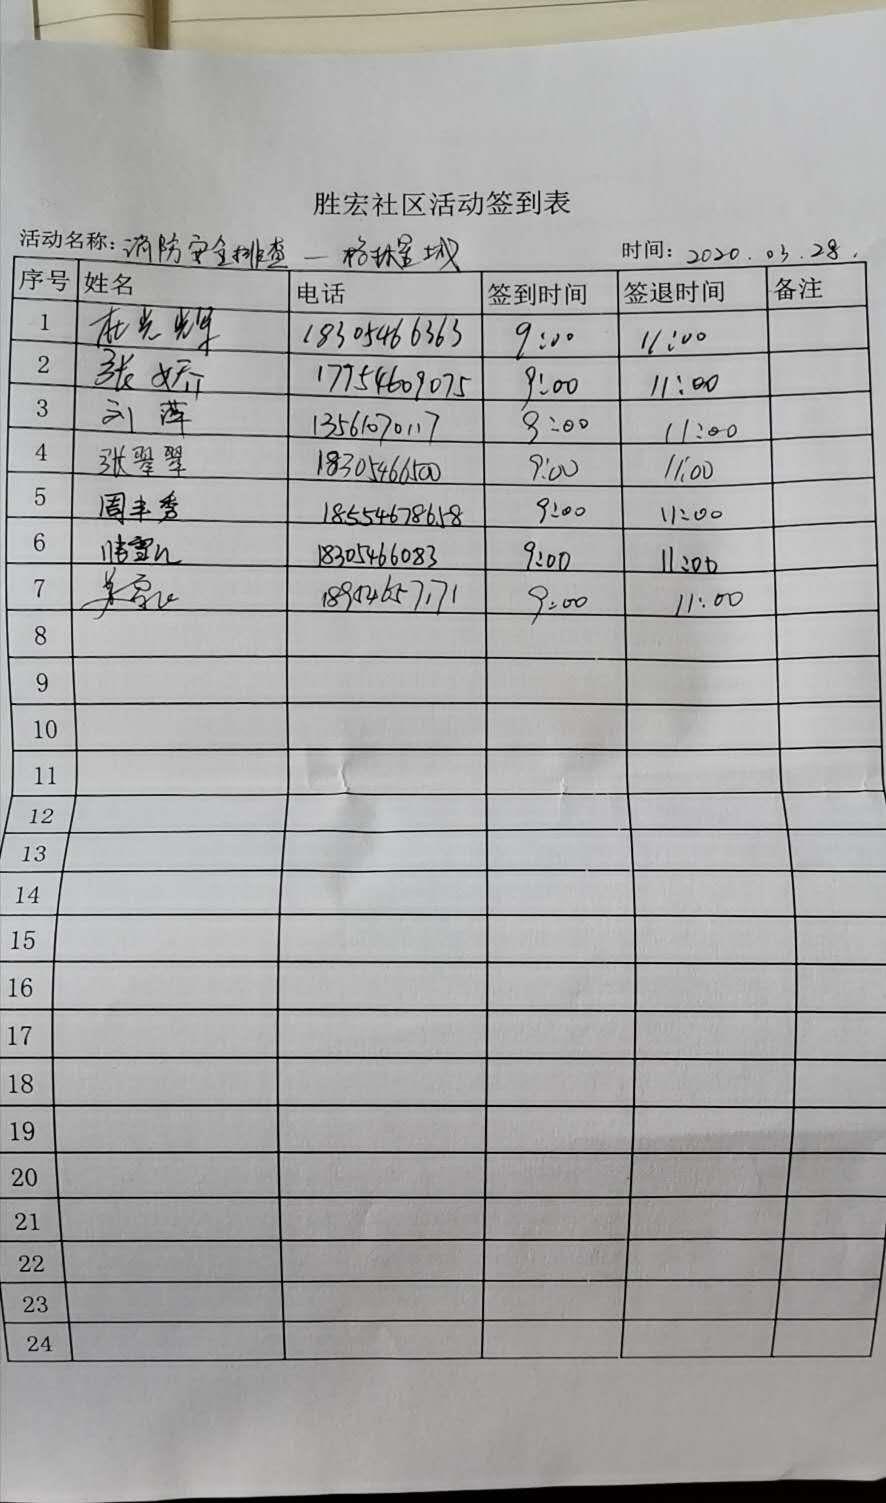 胜宏社区活动签到表
活动名称: 消防安全排查 — 格林星城 时间: 2020.03.28.
序号 姓名 电话 签到时间 签退时间 备注
1 杜光辉 18305466363 9:00 11:00
2 张妍 17754609075 9:00 11:00
3 刘萍 13561070117 9:00 11:00
4 张翠翠 18305466500 9:00 11:00
5 周丰秀 18554678658 9:00 11:00
6 18305466083 9:00 11:00
7 9:00 11:00
8
9
10
11
12
13
14
15
16
17
18
19
20
21
22
23
24